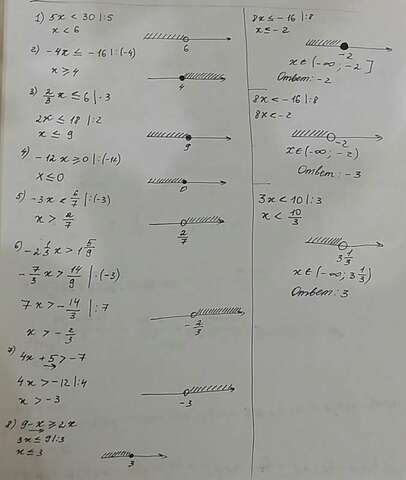 1) 5x < 30 |:5
x < 6
6
2) -4x ≤ -16 |:(-4)
x ≥ 4
4
3) 2/3 x ≤ 6 |·3
2x ≤ 18 |:2
x ≤ 9
9
4) -12x ≥ 0 |:(-12)
x ≤ 0
0
5) -3x < 6/7 |:(-3)
x > 2/7
2/7
6) -2 1/3 x > 1 5/9
-7/3 x > 14/9 |·(-3)
7x > -14/3 |:7
x > -2/3
-2/3
7) 4x + 5 > -7
4x > -12 |:4
x > -3
-3
8) 9 - x ≥ 2x
3x ≤ 9 |:3
x ≤ 3
3
8x ≤ -16 |:8
x ≤ -2
-2
x ∈ (-∞; -2]
Ответ: -2
8x < -16 |:8
8x < -2
-2
x ∈ (-∞; -2)
Ответ: -3
3x < 10 |:3
x < 10/3
3 1/3
x ∈ (-∞; 3 1/3)
Ответ: 3